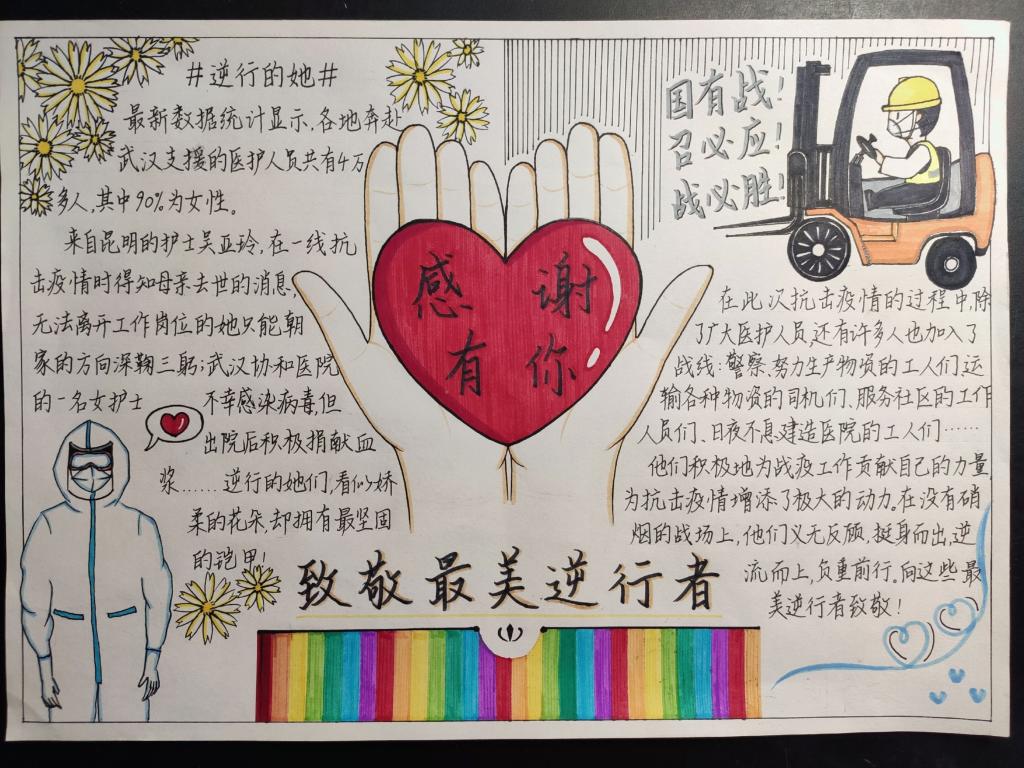 #逆行的她#
最新数据统计显示,各地奔赴
武汉支援的医护人员共有4万
多人,其中90%为女性。
来自昆明的护士吴亚玲,在一线抗
击疫情时得知母亲去世的消息,
无法离开工作岗位的她只能朝
家的方向深鞠三躬;武汉协和医院
的一名女护士
不幸感染病毒,但
出院后积极捐献血
浆……逆行的她们,看似娇
柔的花朵,却拥有最坚固
的铠甲!
感谢
有你
致敬最美逆行者
国有战!
召必应!
战必胜!
在此次抗击疫情的过程中,除
了广大医护人员,还有许多人也加入了
战线:警察、努力生产物资的工人们、运
输各种物资的司机们、服务社区的工作
人员们、日夜不息建造医院的工人们……
他们积极地为战疫工作贡献自己的力量
为抗击疫情增添了极大的动力。在没有硝
烟的战场上,他们义无反顾,挺身而出,逆
流而上,负重前行。向这些最
美逆行者致敬!